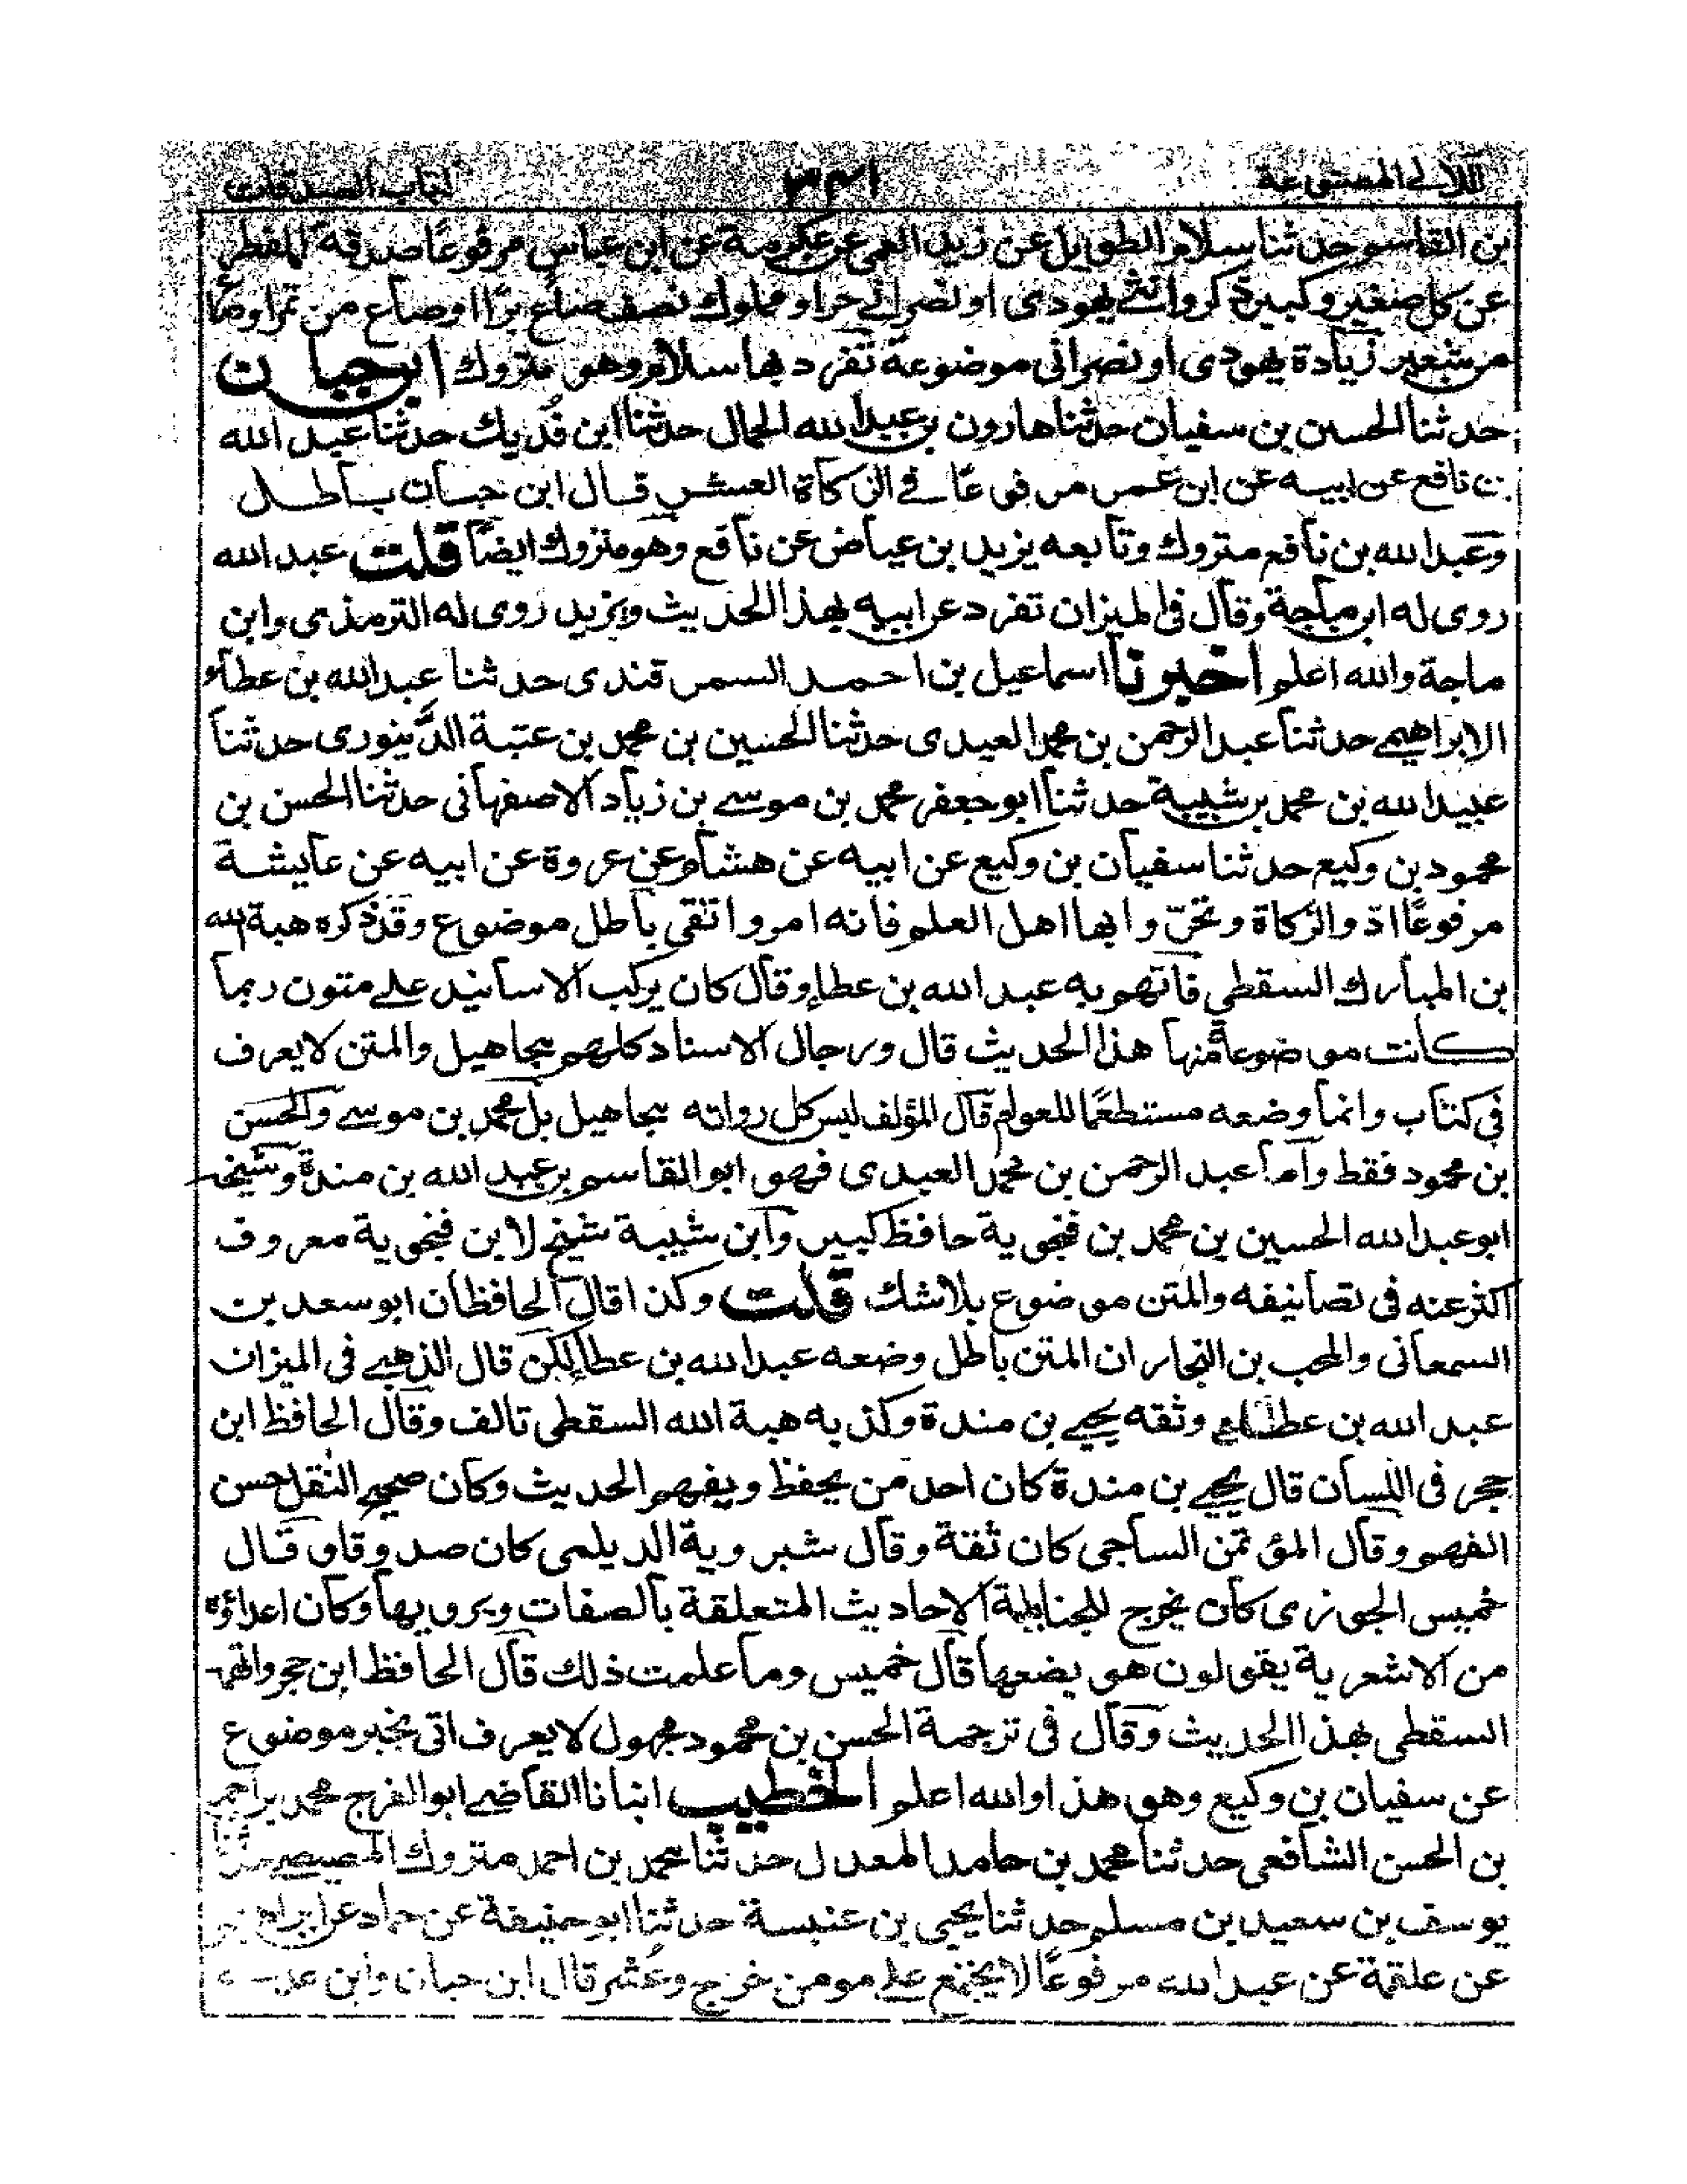 اللآلي المصنوعة ٣٤١ كتاب الصدقات
بن القاسم حدثنا سلام الطويل عن زيد العمي عن عكرمة عن ابن عباس مرفوعًا صدقة الفطر
عن كل صغير وكبير ذكر وانثى يهودى او نصرانى حر او مملوك نصف صاع برّا او صاع من تمر او صاع
من شعير زيادة يهودى او نصرانى موضوعة تفرد بها سلام وهو متروك ابن حبان
حدثنا الحسين بن سفيان حدثنا هارون بن عبدالله الحمال حدثنا ابن فُديك حدثنا عبد الله
بن نافع عن ابيه عن ابن عمر مرفوعًا فى الزكاة العشر قال ابن حبان باطل
وعبد الله بن نافع متروك وتابعه يزيد بن عياض عن نافع وهو متروك ايضًا قلت عبد الله
روى له ابن ماجة وقال فى الميزان تفرد عن ابيه بهذا الحديث ويزيد روى له الترمذى وابن
ماجة والله اعلم اخبرنا اسماعيل بن احمد السمرقندى حدثنا عبدالله بن عطاء
الابراهيمى حدثنا عبد الرحمن بن محمد العبدى حدثنا الحسين بن محمد بن عتبة الدَّينورى حدثنا
عبيدالله بن محمد بن شيبة حدثنا ابو جعفر محمد بن موسى بن زياد الاصفهانى حدثنا الحسن بن
محمود بن وكيع حدثنا سفيان بن وكيع عن ابيه عن هشام عن عروة عن ابيه عن عايشة
مرفوعًا ادّوا الزكاة وتحرّوا بها اهل العلم فانه امروا تقى باطل موضوع وقد ذكره هبة الله
بن المبارك السقطي فاتهم به عبد الله بن عطاء وقال كان يركب الاسانيد على متون ربما
كانت موضوعة منها هذا الحديث قال ورجال الاسناد كلهم مجاهيل والمتن لا يعرف
فى كتاب وانما وضعه مستطعمًا للعوام قال المؤلف ليس كل رواته بمجاهيل بل محمد بن موسى والحسن
بن محمود فقط واما عبد الرحمن بن محمد العبدى فهو ابو القاسم بن عبد الله بن مندة وشيخه
ابو عبدالله الحسين بن محمد بن فنجوية حافظ كبير وابن شيبة شيخ لابن فنجوية معروف
اكثر عنه فى تصانيفه والمتن موضوع بلا شك قلت وكذا قال الحافظان ابو سعد بن
السمعانى والمحب بن النجار ان المتن باطل وضعه عبدالله بن عطاء لكن قال الذهبى فى الميزان
عبد الله بن عطاء وثقه يحيى بن مندة وكذبه هبة الله السقطى تالف وقال الحافظ ابن
حجر فى اللسان قال يحيى بن مندة كان احد من يحفظ ويفهم الحديث وكان صحيح النقل حسن
الفهم وقال المؤتمن الساجى كان ثقة وقال شيروية الديلمى كان صدوقا وقال
خميس الجوزى كان يخرج للحنابلة الاحاديث المتعلقة بالصفات ويرويها وكان اعداؤه
من الاشعرية يقولون هو يضعها قال خميس وما علمت ذلك قال الحافظ ابن حجر واتهمه
السقطى بهذا الحديث وقال فى ترجمة الحسن بن محمود مجهول لا يعرف اتى بخبر موضوع
عن سفيان بن وكيع وهو هذا والله اعلم الخطيب انبانا القاضى ابو الفرج محمد بن احمد
بن الحسن الشافعى حدثنا محمد بن حامد المعدل حدثنا محمد بن احمد متروك المصيصى حدثنا
يوسف بن سعيد بن مسلم حدثنا يحيى بن عنبسة حدثنا ابو حنيفة عن حماد عن ابراهيم
عن علقمة عن عبد الله مرفوعًا لا يجتمع على مومن خرج وعُشر قال ابن حبان وابن عدى